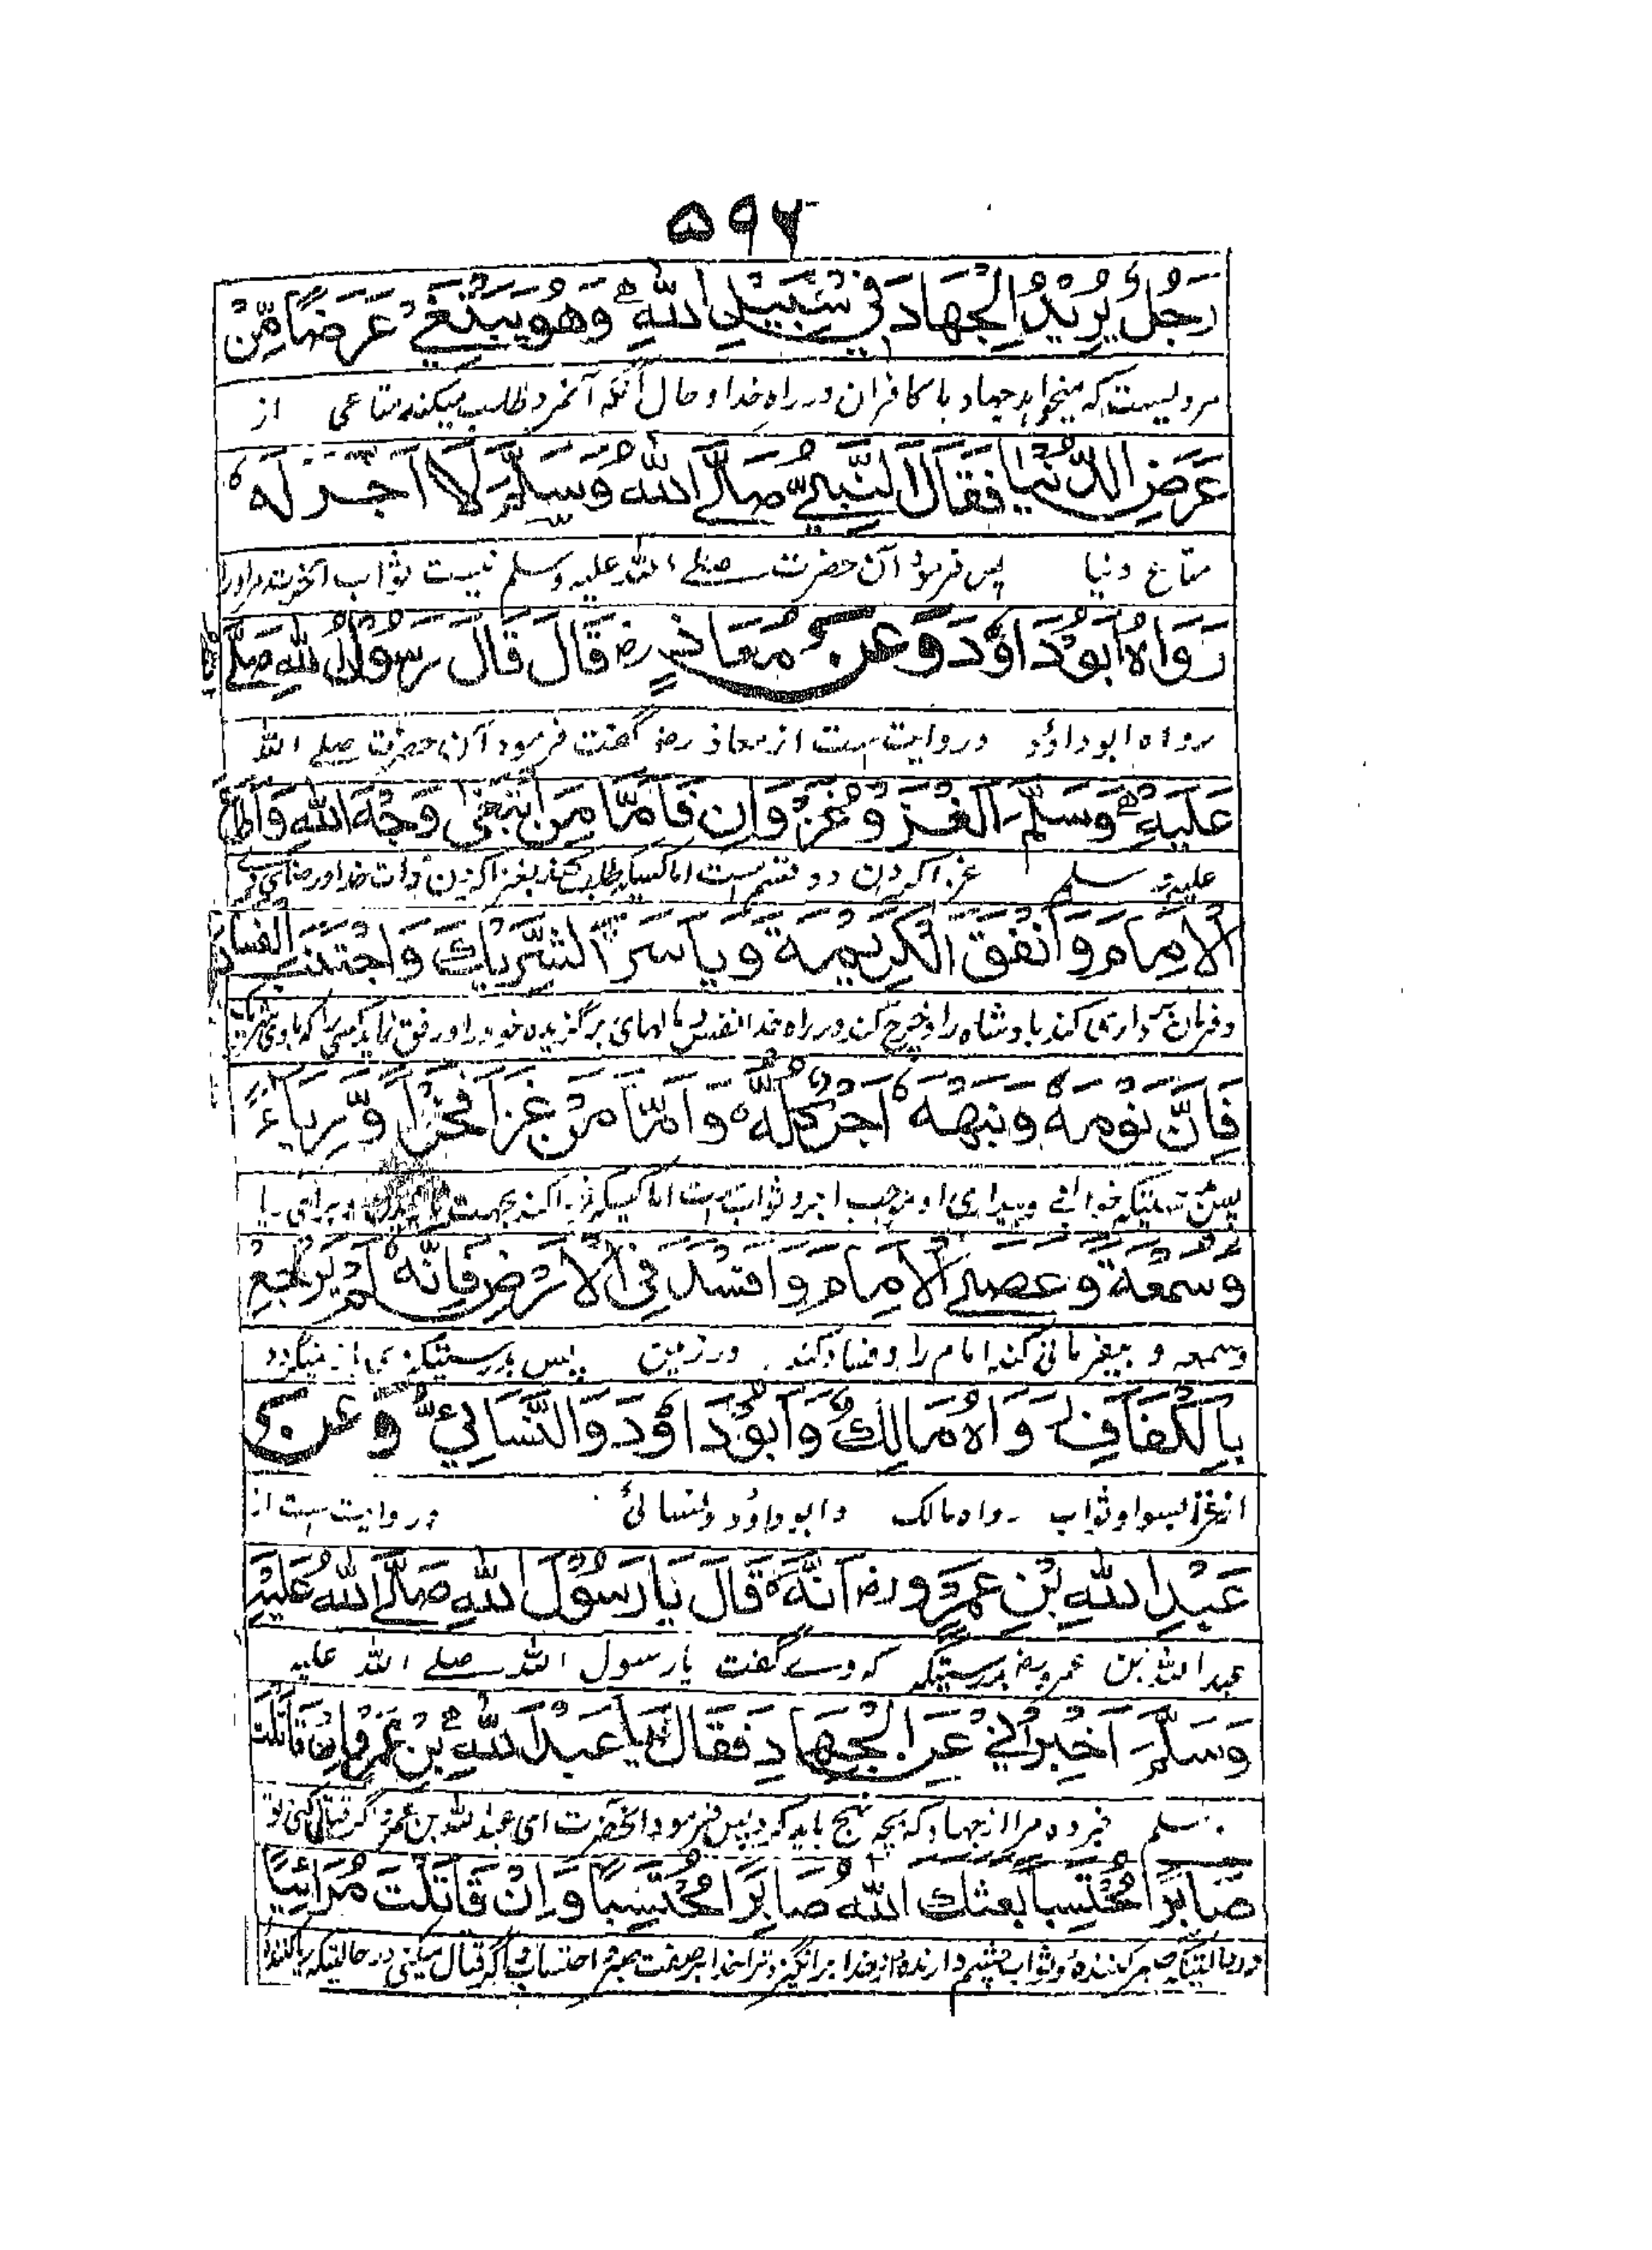 ۵۹۷
رَجُلٌ يُرِيْدُ الْجِهَادَ فِيْ سَبِيْلِ اللّٰهِ وَهُوَ يَبْتَغِيْ عَرَضًا مِّنْ
مردیست که میخواهد جهاد با کافران در راه خدا و حال آنکه آنمرد طلب میکند متاعی از
عَرَضِ الدُّنْيَا فَقَالَ النَّبِيُّ صَلَّے اللّٰهُ وَسَلَّمَ لَا اَجْرَ لَهٗ
متاع دنیا پس فرمود آن حضرت صلے اللّٰه علیه وسلم نیست ثواب آخرت مر او را
رَوَاهُ اَبُوْ دَاؤدَ وَعَنْ مُعَاذٍ رض قَالَ قَالَ رَسُوْلُ اللّٰهِ صَلَّے
رواه ابوداؤد و روایت ست از معاذ رض گفت فرمود آن حضرت صلے اللّٰه
عَلَيْهِ وَسَلَّمَ الْغَزْوُ غَزْوَانِ فَاَمَّا مَنِ ابْتَغٰى وَجْهَ اللّٰهِ وَاَطَاعَ
علیه وسلم غزا کردن دو قسم ست اما کسیکه طلب کند بغزا کردن ذات خدا و رضای
الْاِمَامَ وَاَنْفَقَ الْكَرِيْمَةَ وَيَاسَرَ الشَّرِيْكَ وَاجْتَنَبَ الْفَسَادَ
و فرمان برداری کند بادشاه را و خرچ کند در راه خدا نفیس مالهای برگزیده خود را و رفق نماید کسی را که با وی شریک
فَاِنَّ نَوْمَهٗ وَنَبْهَهٗ اَجْرٌ كُلُّهٗ وَاَمَّا مَنْ غَزَا فَخْرًا وَّرِيَاءً
خواب و بیداری او موجب اجر و ثواب ست اما کسیکه غزا کند بجهت و برای ریا
وَسُمْعَةً وَعَصَے الْاِمَامَ وَاَفْسَدَ فِي الْاَرْضِ فَاِنَّهٗ لَمْ يَرْجِعْ
وسمعه و بیفرمانی کند امام را و فساد کند در زمین پس بدرستیکه وی باز نمیگردد
بِالْكَفَافِ رَوَاهُ مَالِكٌ وَاَبُوْ دَاؤدَ وَالنَّسَائِيُّ وَعَنْ
از غزا بسوا و ثواب رواه مالک و ابوداؤد و نسائی و روایت ست از
عَبْدِ اللّٰهِ بْنِ عَمْرٍو رض اَنَّهٗ قَالَ يَا رَسُوْلَ اللّٰهِ صَلَّے اللّٰهُ عَلَيْهِ
عبد اللّٰه بن عمرو رض بدرستیکه وے گفت یا رسول اللّٰه صلے اللّٰه علیه
وَسَلَّمَ اَخْبِرْنِيْ عَنِ الْجِهَادِ فَقَالَ يَا عَبْدَ اللّٰهِ بْنَ عَمْرٍو اِنْ قَاتَلْتَ
وسلم خبر ده مرا از جهاد که بچه نهج باید کرد پس فرمود آنحضرت ای عبد اللّٰه بن عمرو اگر قتال کنی تو
صَابِرًا مُحْتَسِبًا بَعَثَكَ اللّٰهُ صَابِرًا مُحْتَسِبًا وَاِنْ قَاتَلْتَ مُرَائِيًا
در حالتیکه صبر کننده و ثواب چشم دارنده از خدا برانگیزد ترا خدا بر صفت صبر و احتساب و اگر قتال میکنی در حالتیکه ریا کننده